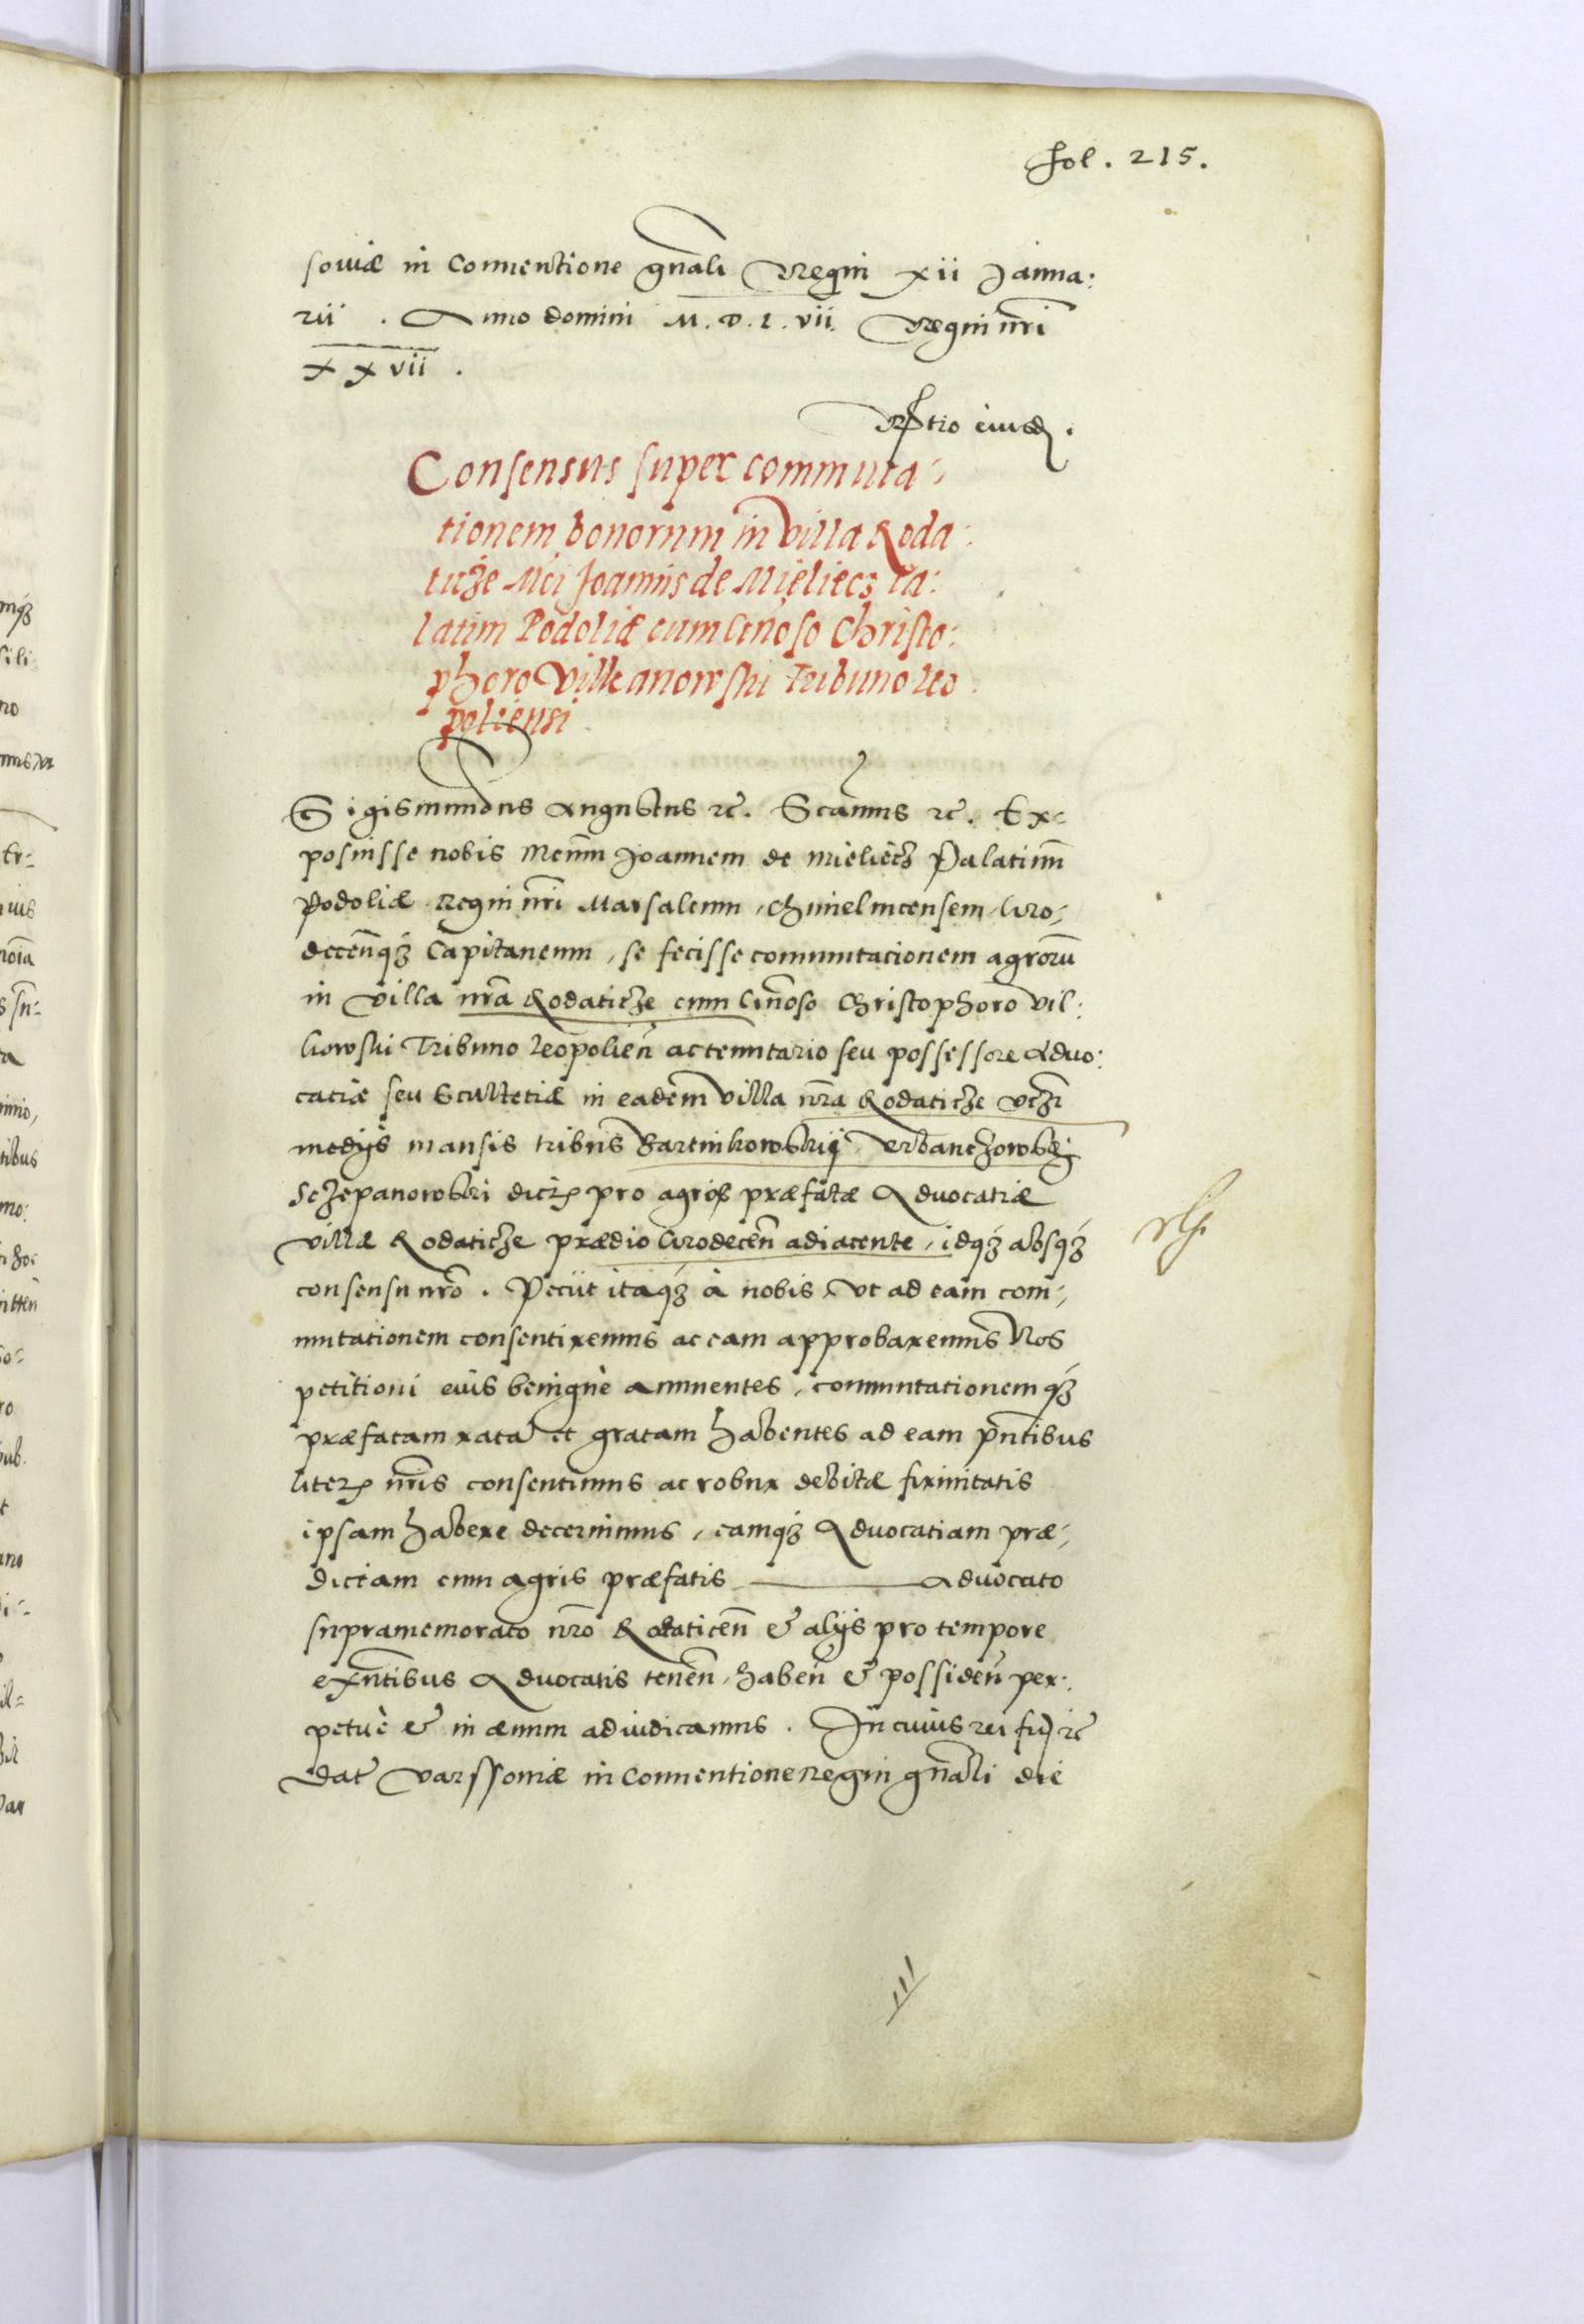 fol. 215.
soviæ in Conuentione gnali Regni xii Janua:
rii. Anno domini M.D.L.vii. Regni nri
xxvii.
Rtio eiusd.
Consensus super commuta-
tionem bonorum in villa Roda:
ticze Mci Joannis de Mieliecz Pa:
latini Podoliæ cum Gnoso Christo:
phoro Vilkanowski Tribuno Leo
poliensi
Sigismundus Augustus rc. Scamus rc. Ex-
posuisse nobis Mcum Joannem de Mieliecz Palatinu
Podoliæ Regni nri Marsalcum, Chmelnicensem, Gro-
decenq3 Capitaneum, se fecisse commutacionem agroru
in villa nra Rodaticze cum Gnoso Christophoro Vil:
kowski Tribuno Leopolien ac tenutario seu possessore Aduo:
catiæ seu Scultetiæ in eadem villa nra Rodaticze vcz
medijs mansis tribus Bartnikowskij, Vrbanczowski
Sczepanowski dict pro agris præfatæ Aduocatiæ
villæ Rodaticze prædio Grodecen adiacente, idq3 absq3
consensu nro. Petiit itaq3 à nobis, vt ad eam com-
mutationem consentiremus ac eam approbaremus Nos
petitioni eius benigne annuentes, commutationemq3
præfatam rata et gratam habentes ad eam pntibus
liter nris consentimus ac robur debitæ firmitatis
ipsam habere decernimus, eamq3 Aduocatiam præ-
dictam cum agris præfatis Aduocato
supramemorato nro Rodaticen & alijs pro tempore
exntibus Aduocatis tenen, haben & possiden per:
petuè & in æuum adiudicamus. In cuius rei fi rc
Dat Varssouiæ in Conuentione Regni gnali die